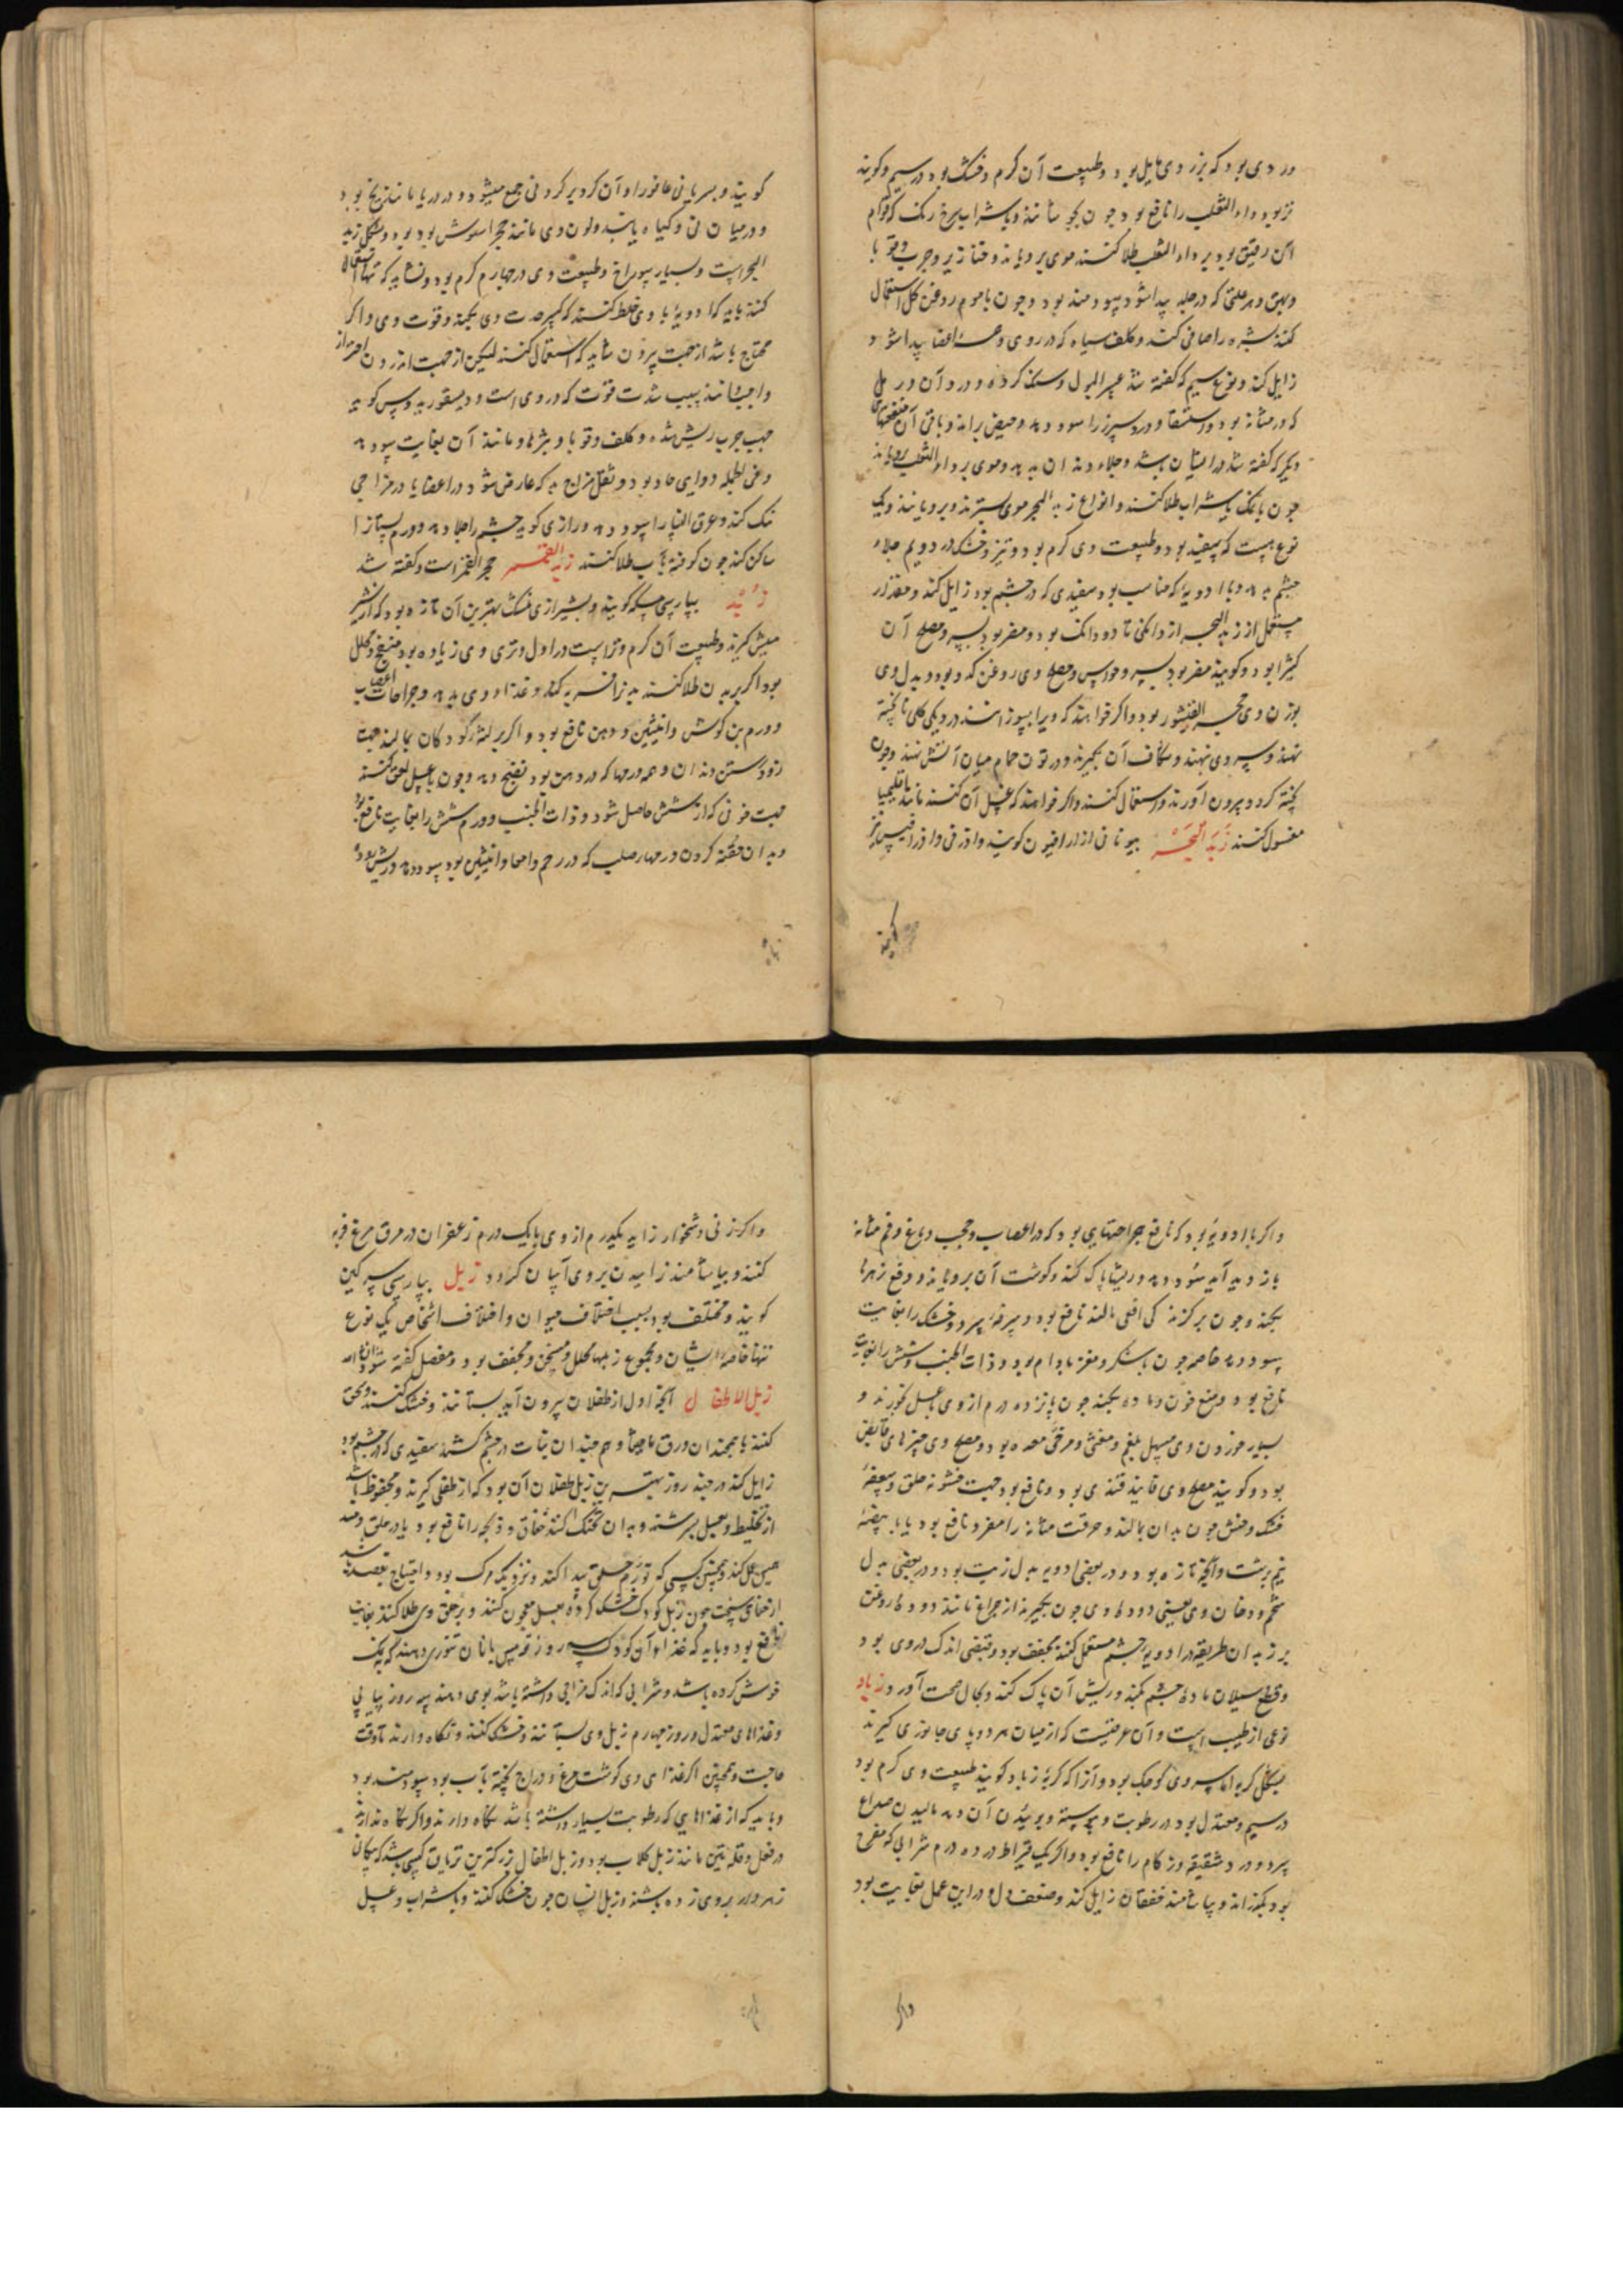 وردی بود که بزردی مایل بود و طبیعت آن گرم و خشک بود در سیم و گویند
تر بود و داء الثعلب را نافع بود چون بشراب سرخ رنگ که قوام
آن رقیق بود بر داء الثعلب طلا کنند موی برویاند و خنازیر و جرب و قوبا
و بهق و هر علتی که در جلد پیدا شود سودمند بود و چون با موم روغن گل استعمال
کنند بشره را صافی کند و کلف سیاه که در روی و همه اعضا پیدا شود
زایل کند و نوع سیم که گفته شد عسر البول و سنگ گرده و درد آن و رمل
که در مثانه بود و استسقا و درد سپرز را سود دهد و حیض براند و باقی آن منفعتهای
دیگر که گفته شد در ایشان باشد و جلاء دندان بدهد و موی بر داء الثعلب برویاند
چون با نمک یا شراب طلا کنند و انواع زبد البحر موی بسترند و برویانند و یک
نوع هست که سفید بود و طبیعت وی گرم بود و تیز و خشک در دویم جلاء
چشم بدهد و با ادویهٔ که مناسب بود سفیدی که در چشم بود زایل کند و مقدار
مستعمل از زبد البحر از دانگی تا دو دانگ بود و مضر بود بسپرز و مصلح آن
کثیرا بود و گویند مضر بود بسر و حواس و مصلح وی روغن کدو بود و بدل وی
بوزن وی حجر القیشور بود و اگر خواهند که ویرا بسوزانند در دیگی گلی ناپخته
نهند و سر وی نهند و شکاف آن بگیرند و در تون حمام میان آتش نهند و چون
پخته گردد بیرون آورند و استعمال کنند و اگر خواهند که غسل آن کنند مانند اقلیمیا
مغسول کنند زبد البحیره بیونانی ازاراقیون گویند و اذرقی و اذراقیس نیز
گویند و بسریانی عافوراو آن گرد بر گرد نی جمع میشود و در دریا مانند یخ بود
و در میان نی و گیاه یابند و لون وی مانند حجر اسیوش بود و بشکل زبد
البحر است و بسیار سوراخ و طبیعت وی در چهارم گرم بود و نشاید که تنها استعمال
کنند باید که ادویهٔ با وی خلط کنند که کسر حدت وی بکند و قوت وی و اگر
محتاج باشد از جهت بیرون شاید که استعمال کنند لیکن از جهت اندرون احتراز
واجب دانند بسبب شدت قوت که در وی است و دیسقوریدوس گوید
جهت جرب ریش شده و کلف و قوبا و بثرها و مانند آن بغایت سود دهد
و فی الجمله دوایی حاد بود و نقل مزاج بد که عارض شود در اعضا یا در مزاجی
نیک کند و عرق النسا را سود دهد و رازی گوید چشم را جلا دهد و ورم پستان را
ساکن کند چون کوفته بآب طلا کنند زبد القمر حجر القمر است و گفته شد
زبد بپارسی مسکه گویند و بشیرازی مشک بهترین آن تازه بود که از شیر
میش گیرند و طبیعت آن گرم و تر است در اول و تری وی زیاده بود منضج و محلل
بود اگر بر بدن طلا کنند بدن را فربه کند و غذاء وی بدهد و جراحات اعصاب
و ورم بن گوش و انثیین و دهن نافع بود و اگر بر لثه کودکان بمالند جهت
زود رستن دندان و همه ورمها که در دهن بود نضج دهد و چون با عسل لعق کنند
جهت خونی که از شش حاصل شود و ذات الجنب و ورم شش را بغایت نافع بود
و بدان حقنه کردن ورمهاء صلب که در رحم و امعا و انثیین بود سود دهد و ریش رود
و اگر با ادویهٔ بود که نافع جراحتهایی بود که در اعصاب و حجب دماغ و فم مثانه
با زدید آید سود دهد و ریشها پاک کند و گوشت آن برویاند و دفع زهرها
بکند و چون بر گزندگی افعی مالند نافع بود و سرفهٔ سرد و خشک را بغایت
سود دهد خاصه چون با شکر و مغز بادام بود و ذات الجنب و شش را بغایت
نافع بود و منع خون دماده بکند چون پانزده درم از وی با عسل بخورند و
بسیار خوردن وی مسهل بلغم و مغثی و مرخی معده بود و مصلح وی چیزهای قابض
بود و گویند مصلح وی فانید قندی بود و نافع بود جهت خشونه حلق و سعفهٔ
خشک و خشن چون بدان بمالند و حرقت مثانه را مضر و نافع بود یا با بیضهٔ
نیم برشت و آنچه تازه بود در بعضی ادویه بدل زیت بود و در بعضی بدل
شحم و دخان وی یعنی دودهٔ وی چون بگیرند از چراغ مانند دودهٔ روغن
بزر بدان طریقه در ادویهٔ چشم مستعمل کنند مجفف بود و قبضی اندک در وی بود
و قطع سیلان مادهٔ چشم بکند و ریش آن پاک کند و بحال صحت آورد زباد
نوعی از طیب است و آن عرقیست که از میان هر دو پای جانوری گیرند
بشکل گربه اما سر وی کوچک بود و آنرا گربهٔ زباد گویند طبیعت وی گرم بود
در سیم و معتدل بود در رطوبت و یبوست و بوییدن آن و مالیدن صداع
سرد و درد شقیقه و زکام را نافع بود و اگر یک قیراط در ده درم شرابی که مفرح
بود بگذرانند و بیاشامند خفقان زایل کند و ضعف دل و در این عمل بغایت بود
واگر
و اگر زنی دشخوار زاید یکدرم از وی با یک درم زعفران در مرق مرغ فربه
کنند و بیاشامند زاییدن بر وی آسان گردد زبل بپارسی سرگین
گویند و مختلف بود بسبب اختلاف حیوان و اختلاف اشخاص یک نوع
تنها خاصه انسان و مجموع زبلها محلل و مسخن و مجفف بود و مفصل گفته شود ان شاء الله
زبل الاطفال آنچه اول از طفلان بیرون آید بستانند و خشک کنند و سحق
کنند با همچندان ورق مامیثا و هم چندان نبات در چشم کشند سفیدی که در چشم بود
زایل کند در چند روز بهترین زبل طفلان آن بود که از طفلی گیرند و محفوظ باشد
از تخلیط و بعسل بسرشند و بدان تحنک کنند خناق و ذبحه را نافع بود یا در حلق دمند
همین عمل کند و همچنین کسی که تورم حلق پیدا کند و نزدیک مرگ بود و احتیاج بقصد باشد
از خناق سخت چون زبل کودک خشک کرده بعسل معجون کنند و بر حلق وی طلا کنند بغایت
نافع بود و باید که غذاء آن کودک سه روز ترمس با نان تنوری دهند که نیک
خوش کرده باشد و شرابی که اندک مزاجی داشته باشد بوی دهند سه روز پیاپی
و غذاهای معتدل و روز چهارم زبل وی بستانند و خشک کنند و نگاه دارند تا وقت
حاجت و همچنین اگر غذای وی گوشت مرغ و دراج پخته بآب بود سودمند بود
و باید که از غذاهایی که رطوبت بسیار داشته باشد نگاه دارند و اگر نگاه ندارند
در فعل و قلة نتن مانند زبل کلاب بود و زبل اطفال بزرگترین تریاق کسی باشد که پیکانی
زهردار بر وی زده باشند و زبل انسان چون خشک کنند و با شراب و عسل